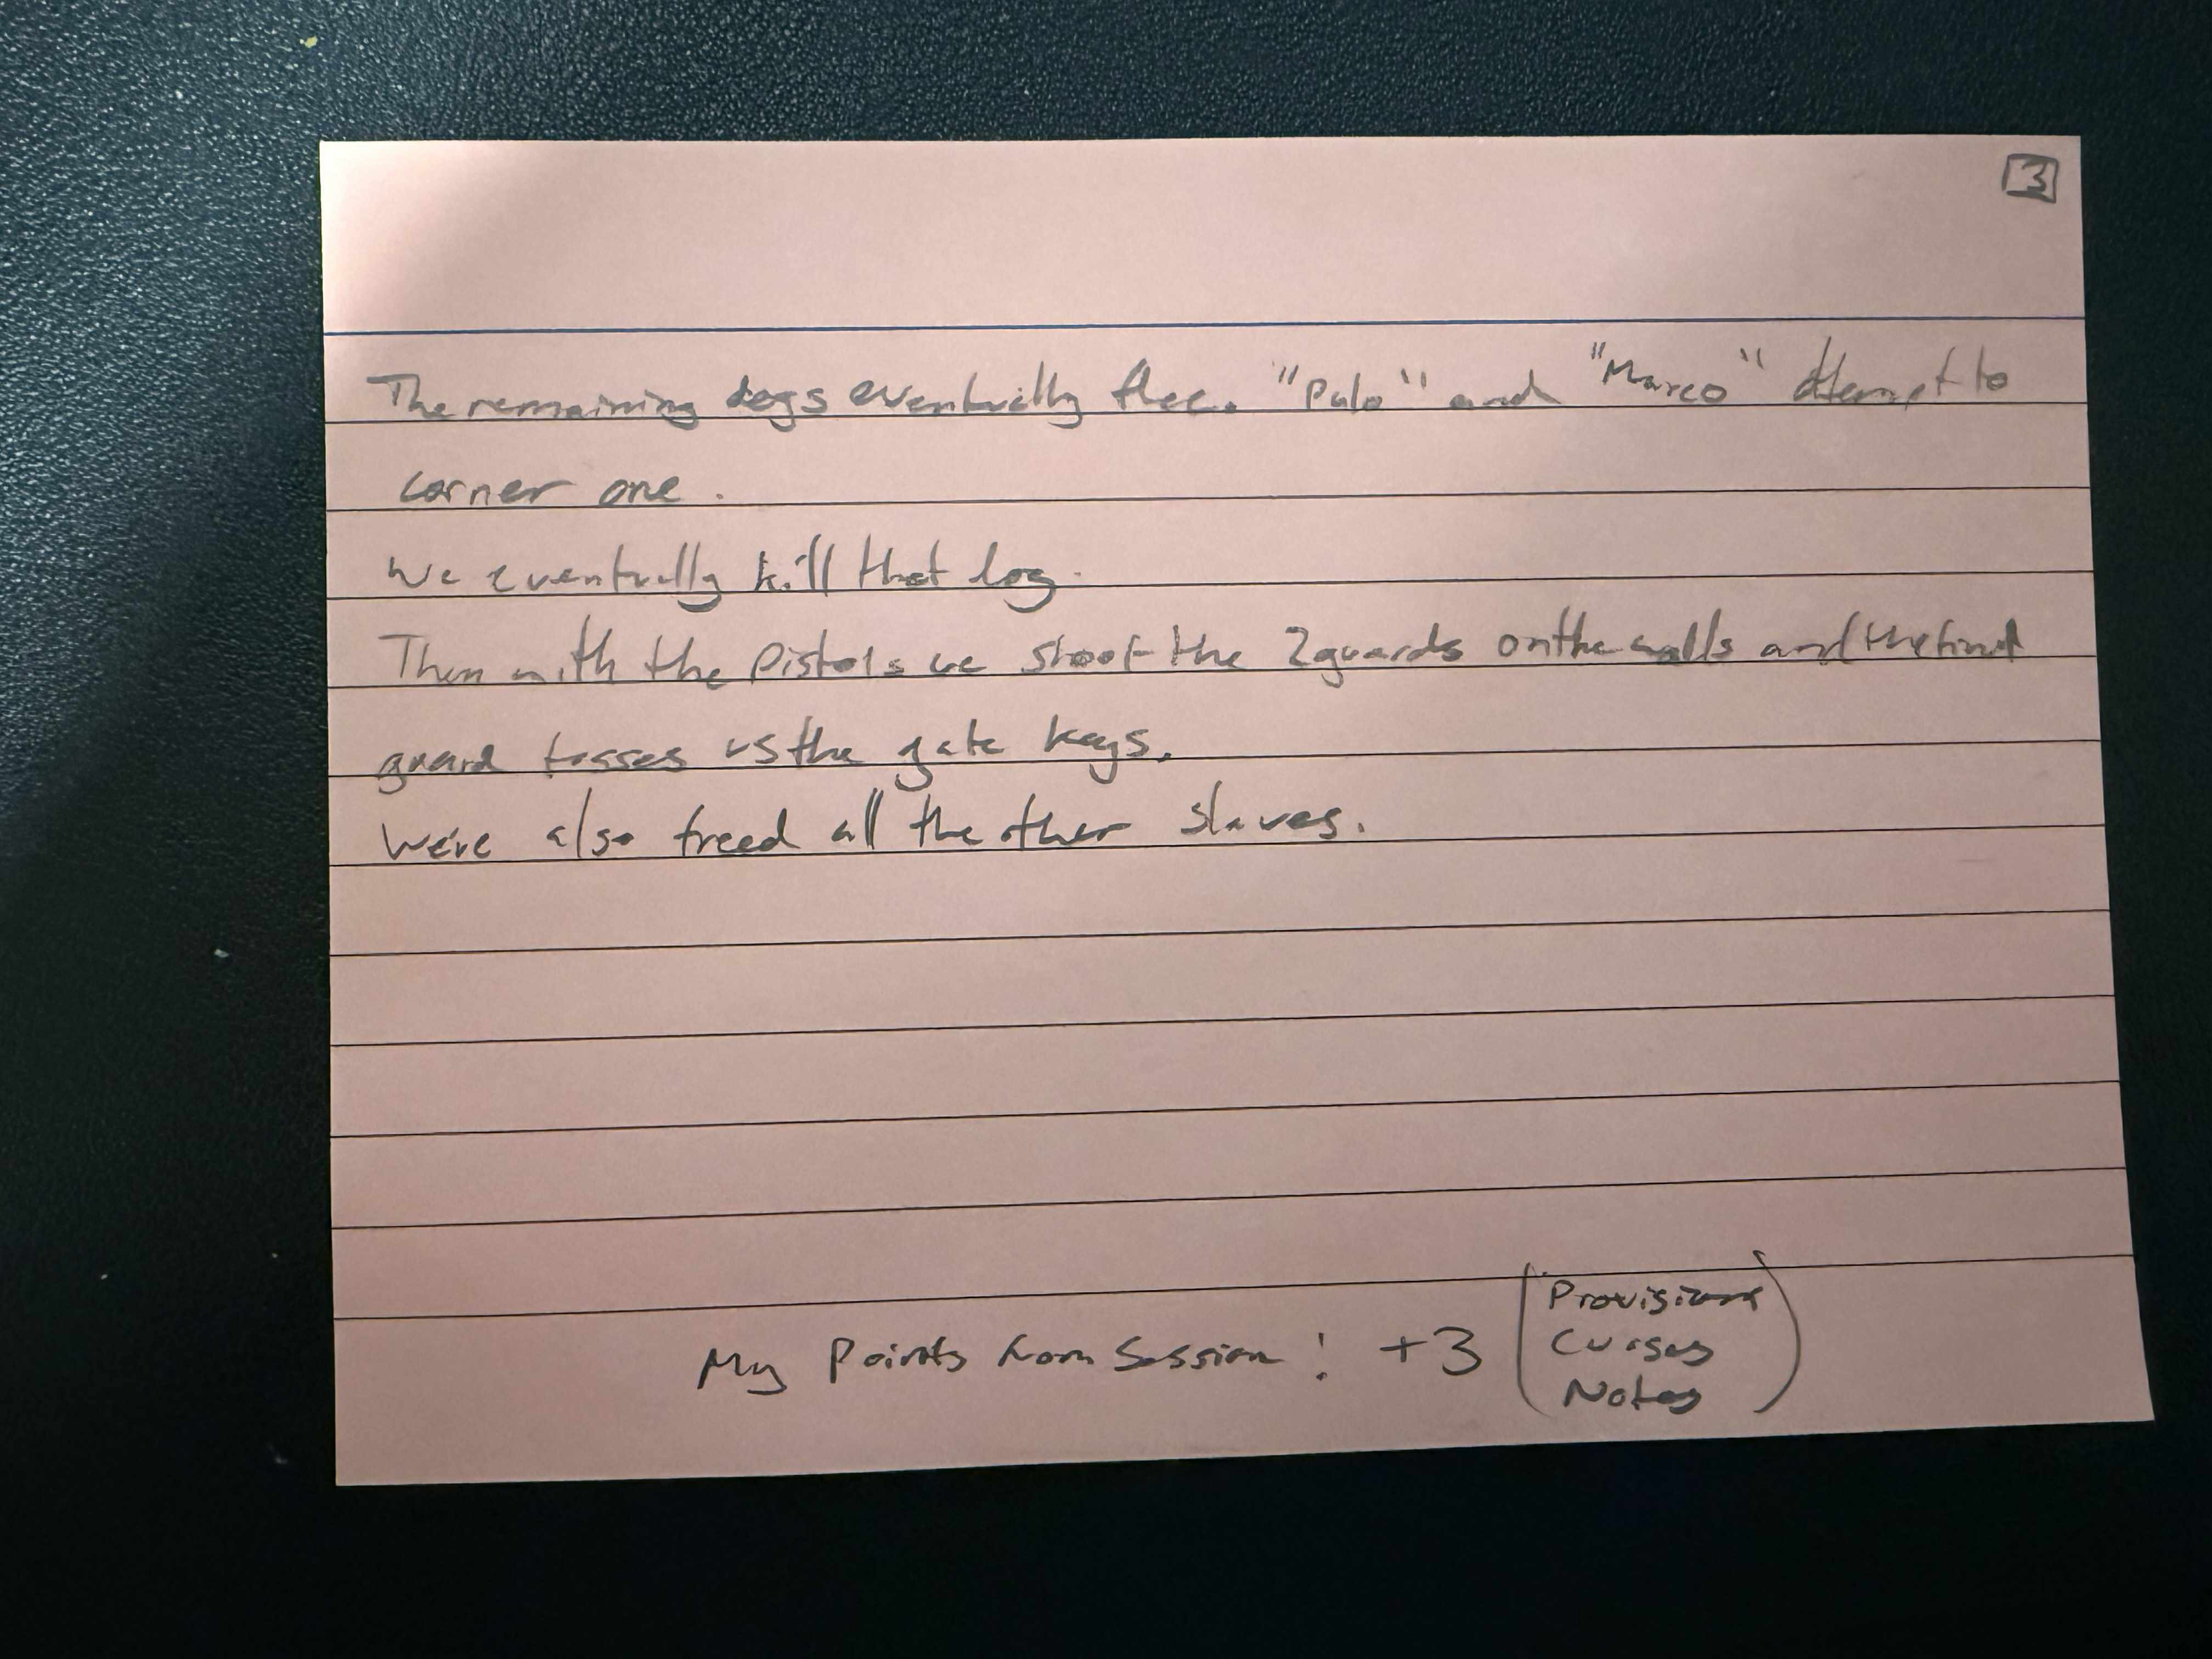 3
The remaining dogs eventually flee. "Polo" and "Marco" attempt to
corner one.
We eventually kill that dog.
Then with the pistols we shoot the 2 guards on the walls and the final
guard tosses us the gate keys.
We've also freed all the other slaves.
My Points from Session: +3 (Provisions
Curses
Notes)